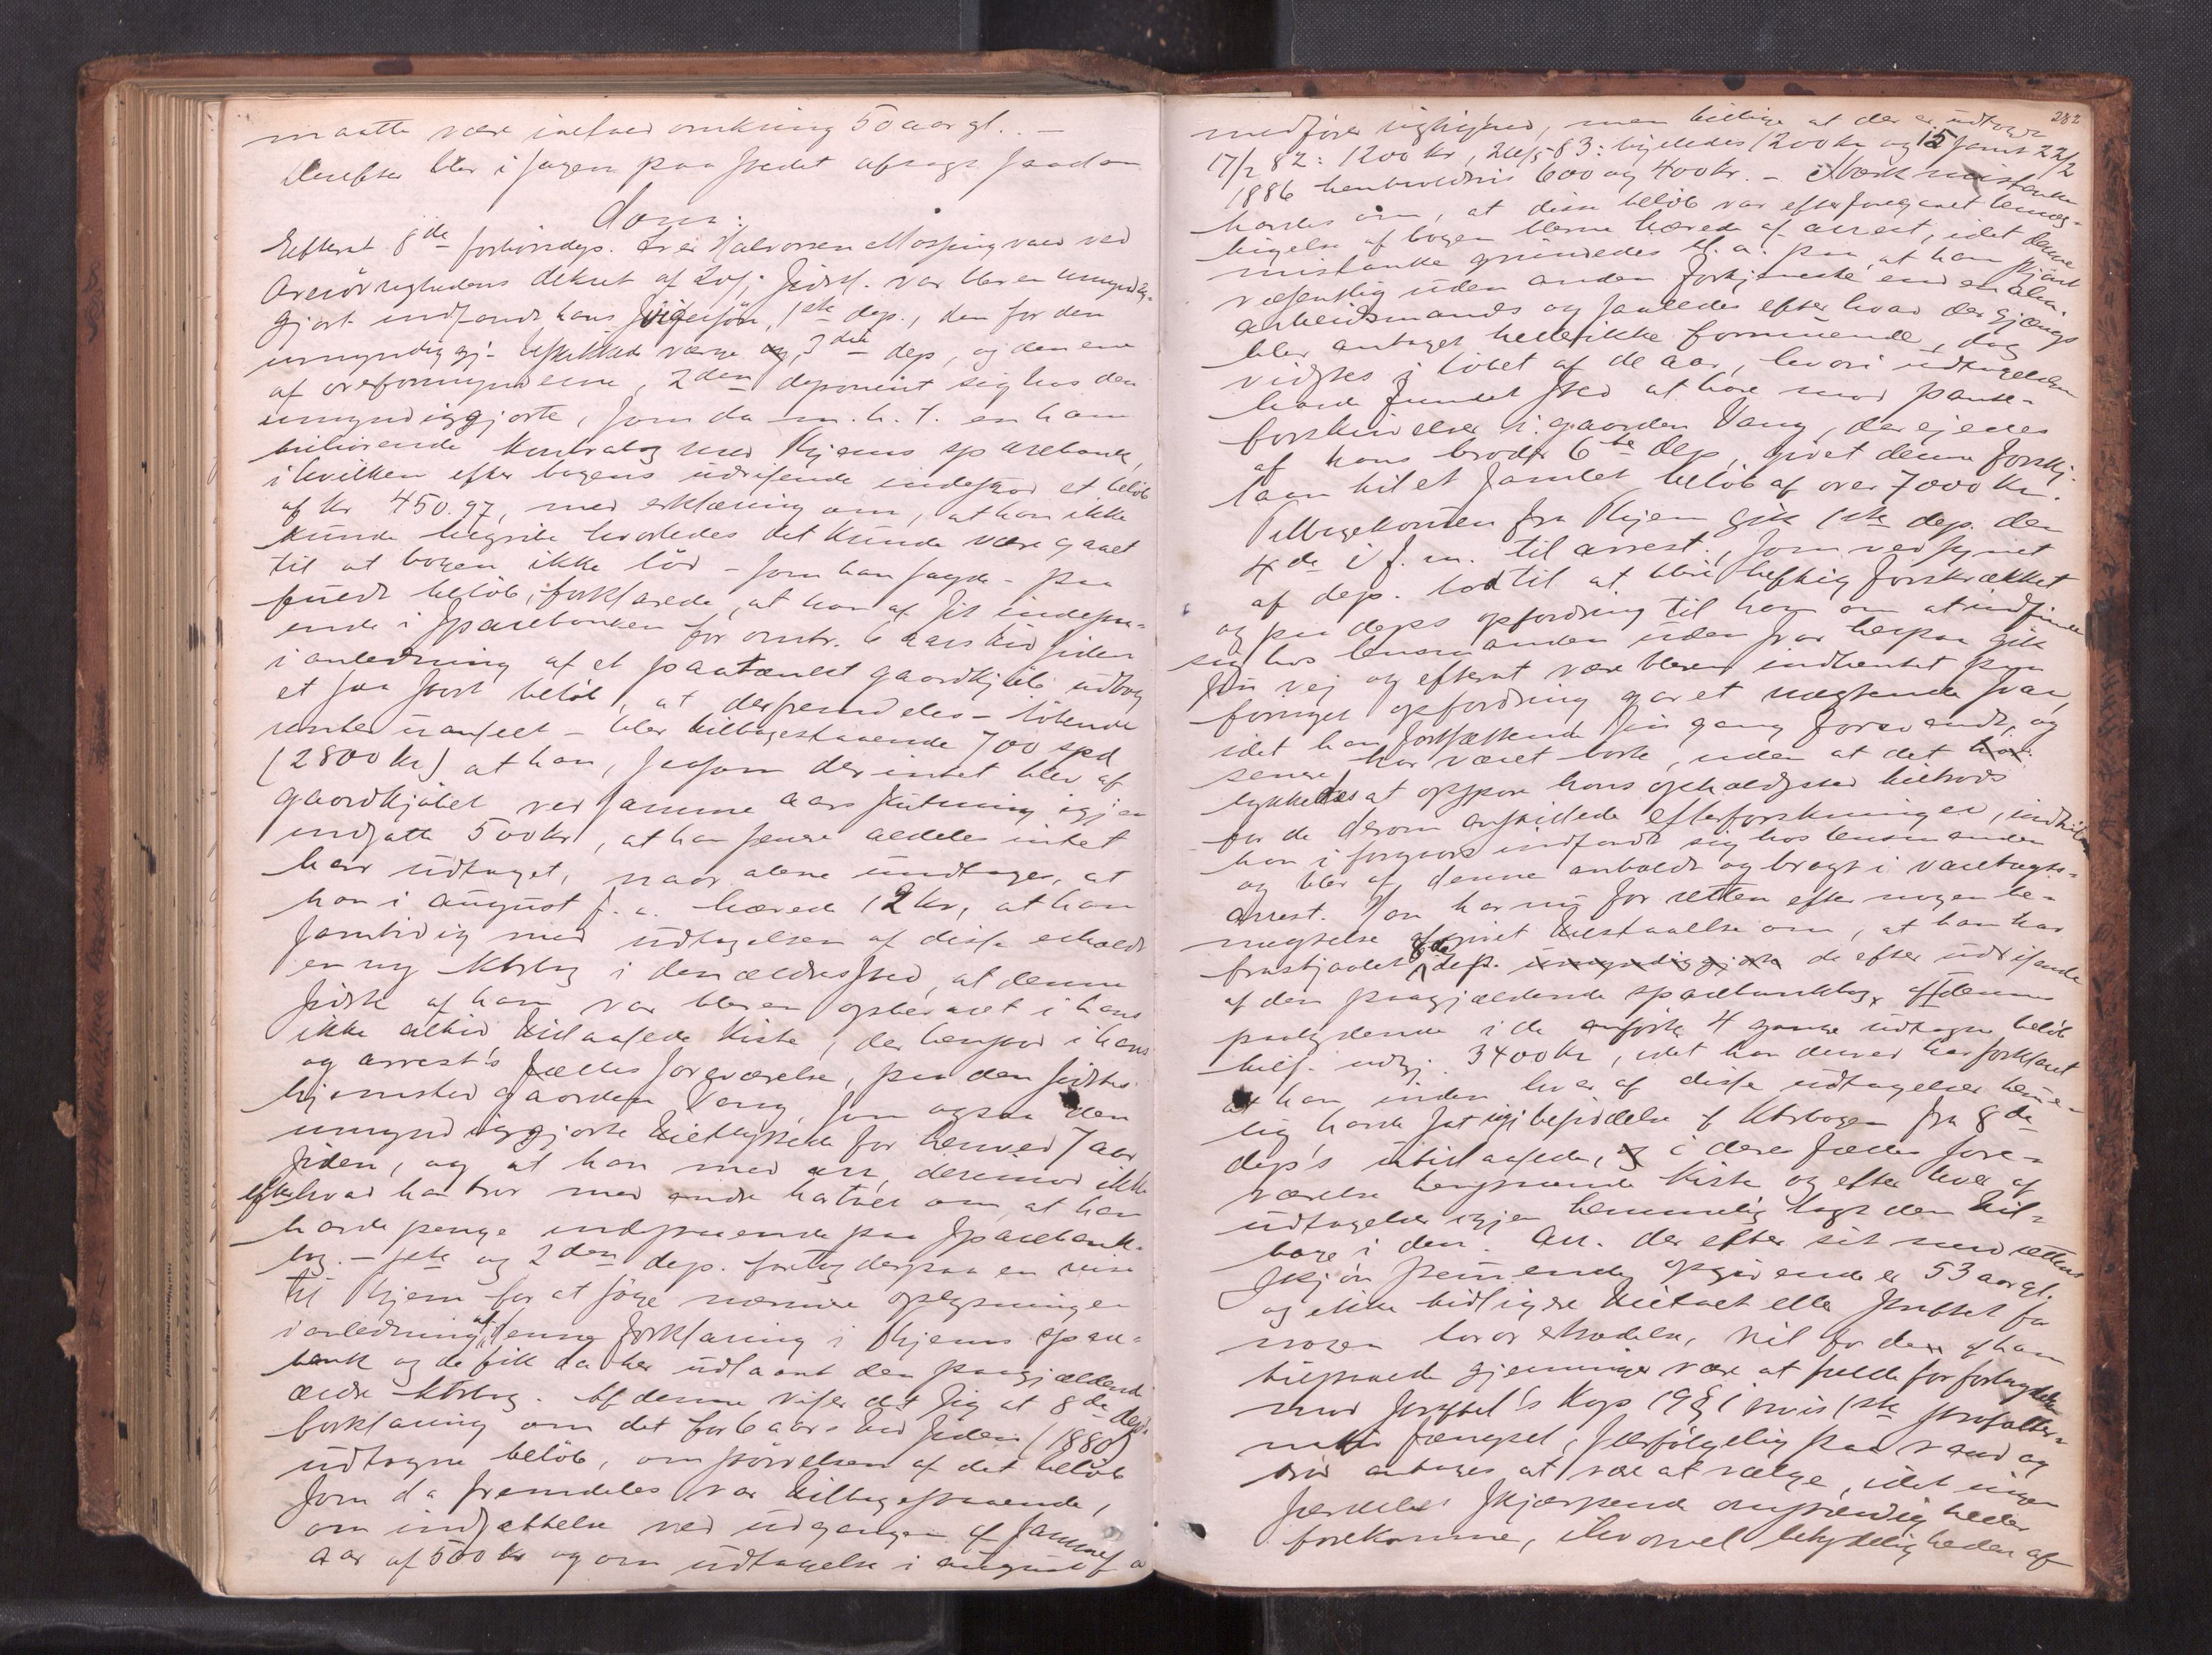 maatte være ialfald omkring 50 aar gl. . –
Derefter blev i sagen paa stedet afsagt saadan
dom:
Efterat 8de forhørsdep. Halvorsen Mosfing var ved
Overøvrighedens dekret af sidstl. var bleven umyndig-
gjort indfandt hans 1ste dep., den for den
umyndiggj. beskikkede værge og 3die dep, og den ene
af overformynderne, 2den deponent sig hos den
umyndiggjorte, som da m. h. t. en ham
tilhørende kontrabog med Skjens sparebank,
i hvilken efter bogens udvisende indestod et beløb
af kr 450.97, med erklæring om, at han ikke
kunde begribe hvorledes det kunde være gaaet
til at bogen ikke lød – som han sagde – paa
beløb, forklarede, at han af sit indestaa-
ende i Sparebanken for omtr. 6 aars tid siden
i anledning af et paatænkt gaardkjøb udtog
et saa stort beløb, at der fremdeles – løbende
renter uanseet – blev tilbagestaaende 700 spd
(2800 kr) at han, saasom der intet blev af
gaardkjøbet ved samme aars slutning igjen
indsatte 500 kr, at han senere aldeles intet
har udtaget, naar alene undtages, at
han i august f. a. hævede 12 kr, at han
samtidig med udtagelsen af disse erholdt
en ny ktrbog i den ældres sted, at denne
sidste af ham var bleven opbevaret i hans
ikke altid tillaasede kiste, der henstod i hans
og arrest's fælles soveværelse, paa den sidstes
hjemsted gaarden Vang, som ogsaa den
umyndiggjorte tilflyttede for henved 7 aar
siden, og at han med arr, derimod ikke
efter hvad han tror med andre har talt om, at han
havde penge indestaaende paa Sparebank-
bog. – 1ste og 2den dep. foretog derpaa en reise
til Skjen for at søge nærmere oplysninger
i anledning af denne forklaring i Skjens spare-
bank og de fik da her udlaant den paagjældende
ældre ktrbog. Af denne viser det sig at 8de dep's
forklaring om det for 6 aars tid siden (1880)
udtagne beløb, om størrelsen af det beløb
som da fremdeles var tilbagestaaende,
om indsættelse ved udgangen af samme
aar af 500 kr og om udtagelse i august f a
282
medfører rigtighed, men tillige at der er udtaget
17/2 82: 1200 kr, 24/5 83: ligeledes 1200 kr og 15 samt 22/2
1886 henholdsvis 600 og 400 kr. – mistanke
havdes om, at disse beløb var efter foregaaet bemæg-
tigelse af bogen blevne hævede af arrest, idet denne
mistanke grundedes bl. a. paa, at han skjønt
væsentlig uden anden fortjeneste end en alm
arbeidsmands og saaledes efter hvad der gjængs
blev antaget heller ikke formuende, dog
vidstes i løbet af de aar, hvori udtagelsen
havde fundet sted at have mod pante-
forskrivelser i gaarden Vang, der ejedes
af hans broder 6te dep, givet denne forskj.
laan til et samlet beløb af over 7000 kr.
Tilbagekomen fra Skjen gik 1ste dep. den
4de i f. m. til arrest., som ved synet
af dep. lod til at blive heftig forskrækket
og paa deps opfordring til ham om at indfinde
sig hos lensmanden uden svar herpaa gik
sin vej og efterat være bleven indhentet paa
fornyet opfordring gav et nægtende svar,
idet han fortsættende sin gang forsvandt, og
senere har været borte, uden at det
lykkedes at opspore hans opholdssted tiltrods
for de derom anstillede efterforskninger, indtil
han i forgaars indfandt sig hos lensmanden
og blev af denne anholdt og bragt i varetægts-
arrest. Han har nu for retten efter nogen be-
nægtelse afgivet tilstaaelse om, at han har
frastjaalet 8de dep. umyndiggjorte de efter udvisende
af den paagjældende sparebankbog, af dennes
paalydende i de anførte 4 gange udtagne beløb
tils. udgj. 3400 kr, idet han derved har forklaret
at han inden hver af disse udtagelser heme-
lig havde sat sig i besiddelse af ktrbogen fra 8de
dep's utillaasede, og i deres fælles sove-
værelse henstaaende kiste og efter hver af
udtagelser igjen hemmelig lagt den til-
bage i den. Arr. der efter sit med rettens
skjøn stemmende opgivende er 53 aar gl.
og ikke tidligere tiltalt eller straffet for
nogen lovovertrædelse, vil for de af ham
tilstaaede gjerninger være at fælde for forbrydelse
mod straffel's kap 19 § 1 hvis 1ste strafalter-
nativ fængsel, selvfølgelig paa vand og
brød antages at være at vælge, idet ingen
særdeles skjærpende omstændigheder
forekomme, ihvorvel betydeligheden af